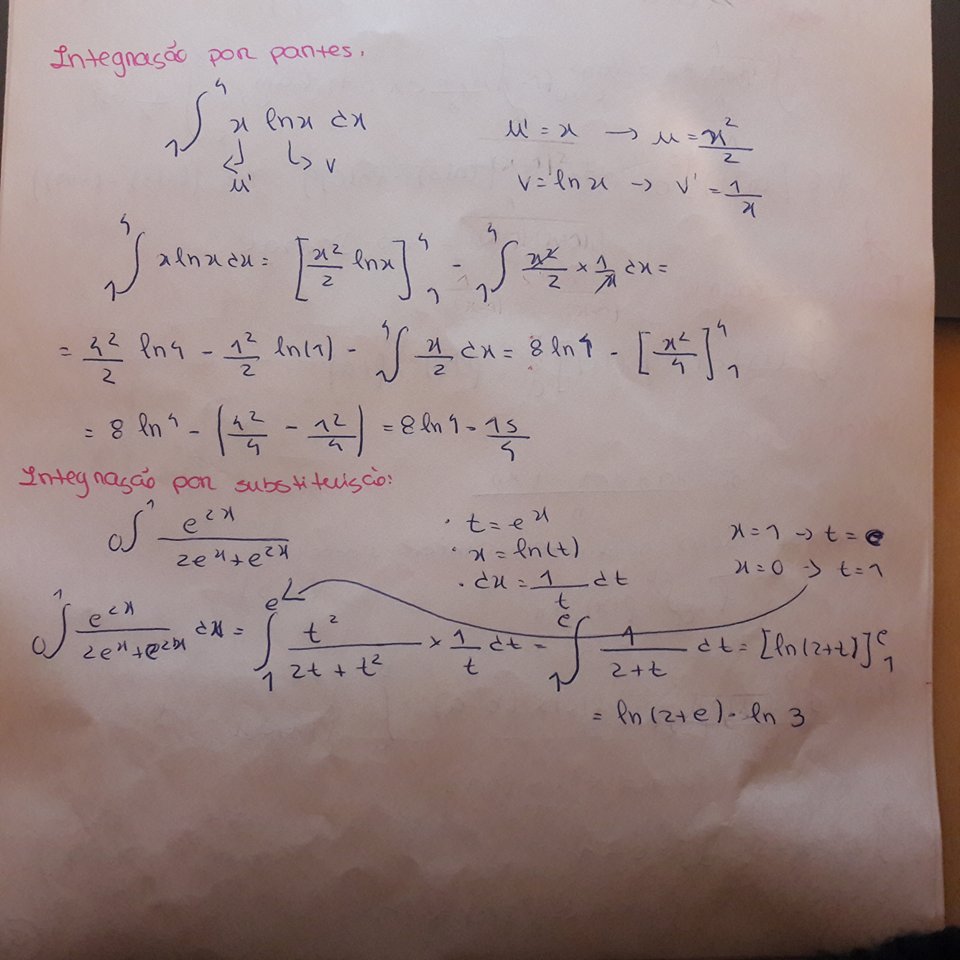 Integração por partes.
∫₁⁴ x lnx dx
u' v
u' = x → u = x²/2
v = lnx → v' = 1/x
∫₁⁴ xlnxdx = [x²/2 lnx]₁⁴ - ∫₁⁴ x²/2 × 1/x dx =
= 4²/2 ln4 - 1²/2 ln(1) - ∫₁⁴ x/2 dx = 8 ln4 - [x²/4]₁⁴
= 8 ln4 - (4²/4 - 1²/4) = 8 ln4 - 15/4
Integração por substituição:
∫₀¹ e²ˣ/(2eˣ+e²ˣ)
· t = eˣ
· x = ln(t)
· dx = 1/t dt
x=1 → t=e
x=0 → t=1
∫₀¹ e²ˣ/(2eˣ+e²ˣ) dx = ∫₁ᵉ t²/(2t+t²) × 1/t dt = ∫₁ᵉ 1/(2+t) dt = [ln(2+t)]₁ᵉ
= ln(2+e) - ln 3